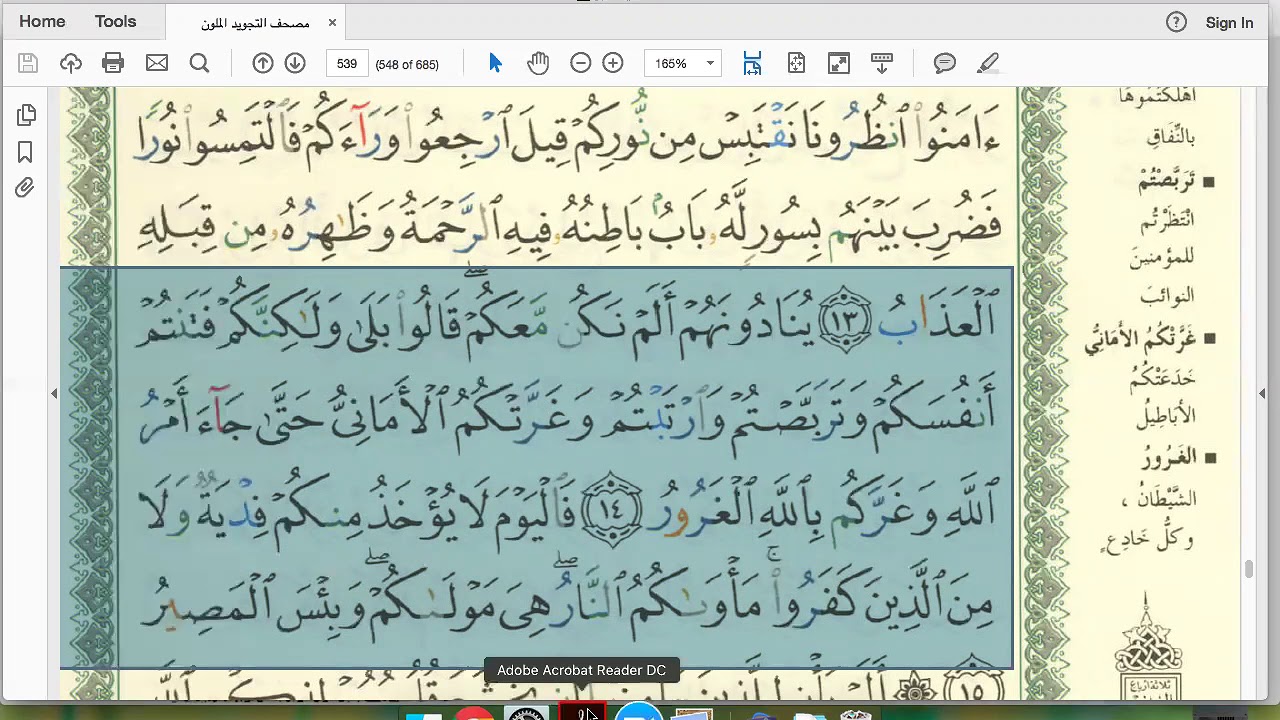 Home Tools مصحف التجويد الملون × Sign In
539 (548 of 685) 165%
ءَامَنُواْ ٱنظُرُونَا نَقۡتَبِسۡ مِن نُّورِكُمۡ قِيلَ ٱرۡجِعُواْ وَرَآءَكُمۡ فَٱلۡتَمِسُواْ نُورٗا
فَضُرِبَ بَيۡنَهُم بِسُورٖ لَّهُۥ بَابُۢ بَاطِنُهُۥ فِيهِ ٱلرَّحۡمَةُ وَظَٰهِرُهُۥ مِن قِبَلِهِ
ٱلۡعَذَابُ ١٣ يُنَادُونَهُمۡ أَلَمۡ نَكُن مَّعَكُمۡۖ قَالُواْ بَلَىٰ وَلَٰكِنَّكُمۡ فَتَنتُمۡ
أَنفُسَكُمۡ وَتَرَبَّصۡتُمۡ وَٱرۡتَبۡتُمۡ وَغَرَّتۡكُمُ ٱلۡأَمَانِيُّ حَتَّىٰ جَآءَ أَمۡرُ
ٱللَّهِ وَغَرَّكُم بِٱللَّهِ ٱلۡغَرُورُ ١٤ فَٱلۡيَوۡمَ لَا يُؤۡخَذُ مِنكُمۡ فِدۡيَةٞ وَلَا
مِنَ ٱلَّذِينَ كَفَرُواْۚ مَأۡوَىٰكُمُ ٱلنَّارُۖ هِيَ مَوۡلَىٰكُمۡۖ وَبِئۡسَ ٱلۡمَصِيرُ
١٥
أَهْلَكْتُمُوهَا
بالنِّفَاقِ
■ تَرَبَّصْتُمْ
انْتَظَرْتُم
للمؤمنينَ
النوائبَ
■ غَرَّتْكُمُ الأَمَانِيُّ
خَدَعَتْكُمُ
الأبَاطِيلُ
■ الغَرُورُ
الشَّيْطَانُ ،
وكلُّ خَادِعٍ
ثلاثة أرباع
Adobe Acrobat Reader DC